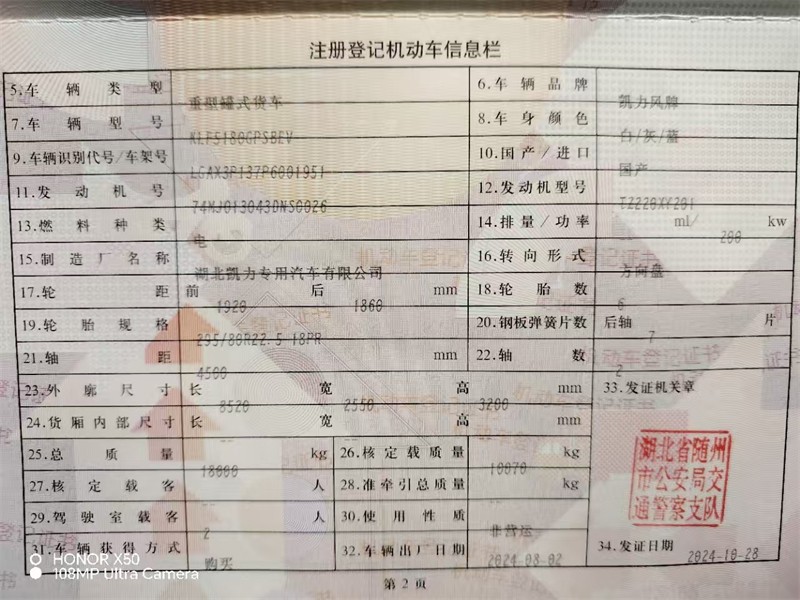 注册登记机动车信息栏
5.车辆类型 重型罐式货车 6.车辆品牌 凯力风牌
7.车辆型号 KLF5180GPSBEV 8.车身颜色 白/灰/蓝
9.车辆识别代号/车架号 LGAX3P137P6001951 10.国产/进口 国产
11.发动机号 74MJ013043DNS0026 12.发动机型号 TZ220XY201
13.燃料种类 电 14.排量/功率 ml/ 200 kw
15.制造厂名称 湖北凯力专用汽车有限公司 16.转向形式 方向盘
17.轮距 前 1920 后 1860 mm 18.轮胎数 6
19.轮胎规格 295/80R22.5 18PR 20.钢板弹簧片数 后轴 7 片
21.轴距 4500 mm 22.轴数 2
23.外廓尺寸 长 8520 宽 2550 高 3200 mm 33.发证机关章
24.货厢内部尺寸 长 -- 宽 -- 高 -- mm
25.总质量 18000 kg 26.核定载质量 10070 kg
27.核定载客 -- 人 28.准牵引总质量 -- kg
29.驾驶室载客 2 人 30.使用性质 非营运
31.车辆获得方式 购买 32.车辆出厂日期 2024-08-02 34.发证日期 2024-10-28
湖北省随州
市公安局交
通警察支队
第2页
HONOR X50
108MP Ultra Camera